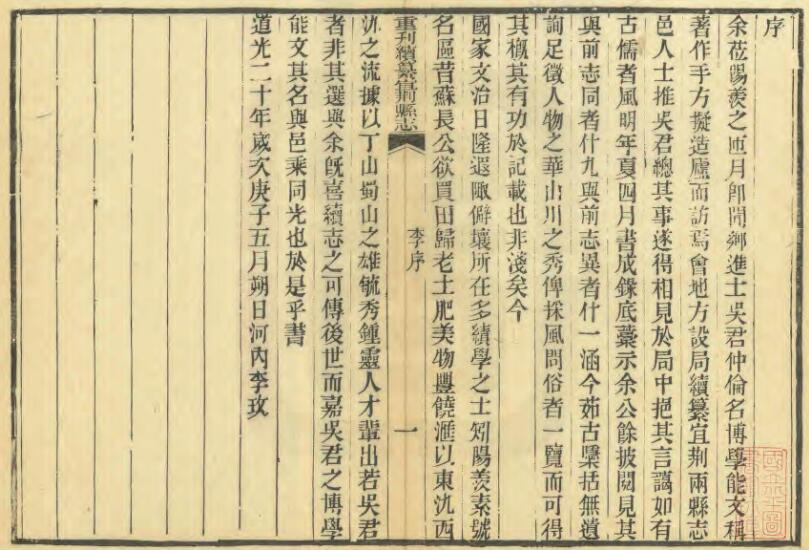 序
余莅陽羡之匝月卽聞鄉進士吳君仲倫名博學能文稱
著作手方擬造廬而訪焉會地方設局續纂宜荆兩縣志
邑人士推吳君總其事遂得相見於局中挹其言藹如有
古儒者風明年夏四月書成錄底藁示余公餘披閱見其
與前志同者什九與前志異者什一涵今茹古檃括無遺
詢足徵人物之華山川之秀俾採風問俗者一覽而可得
其槪其有功於記載也非淺矣今
國家文治日隆遐陬僻壤所在多績學之士矧陽羨素號
名區昔蘇長公欲買田歸老土肥美物豐饒滙以東氿西
重刊續纂宜荆縣志
李序
一
氿之流據以丁山蜀山之雄毓秀鍾靈人才輩出若吳君
者非其選與余旣喜續志之可傳後世而嘉吳君之博學
能文其名與邑乘同光也於是乎書
道光二十年歲次庚子五月朔日河內李玫